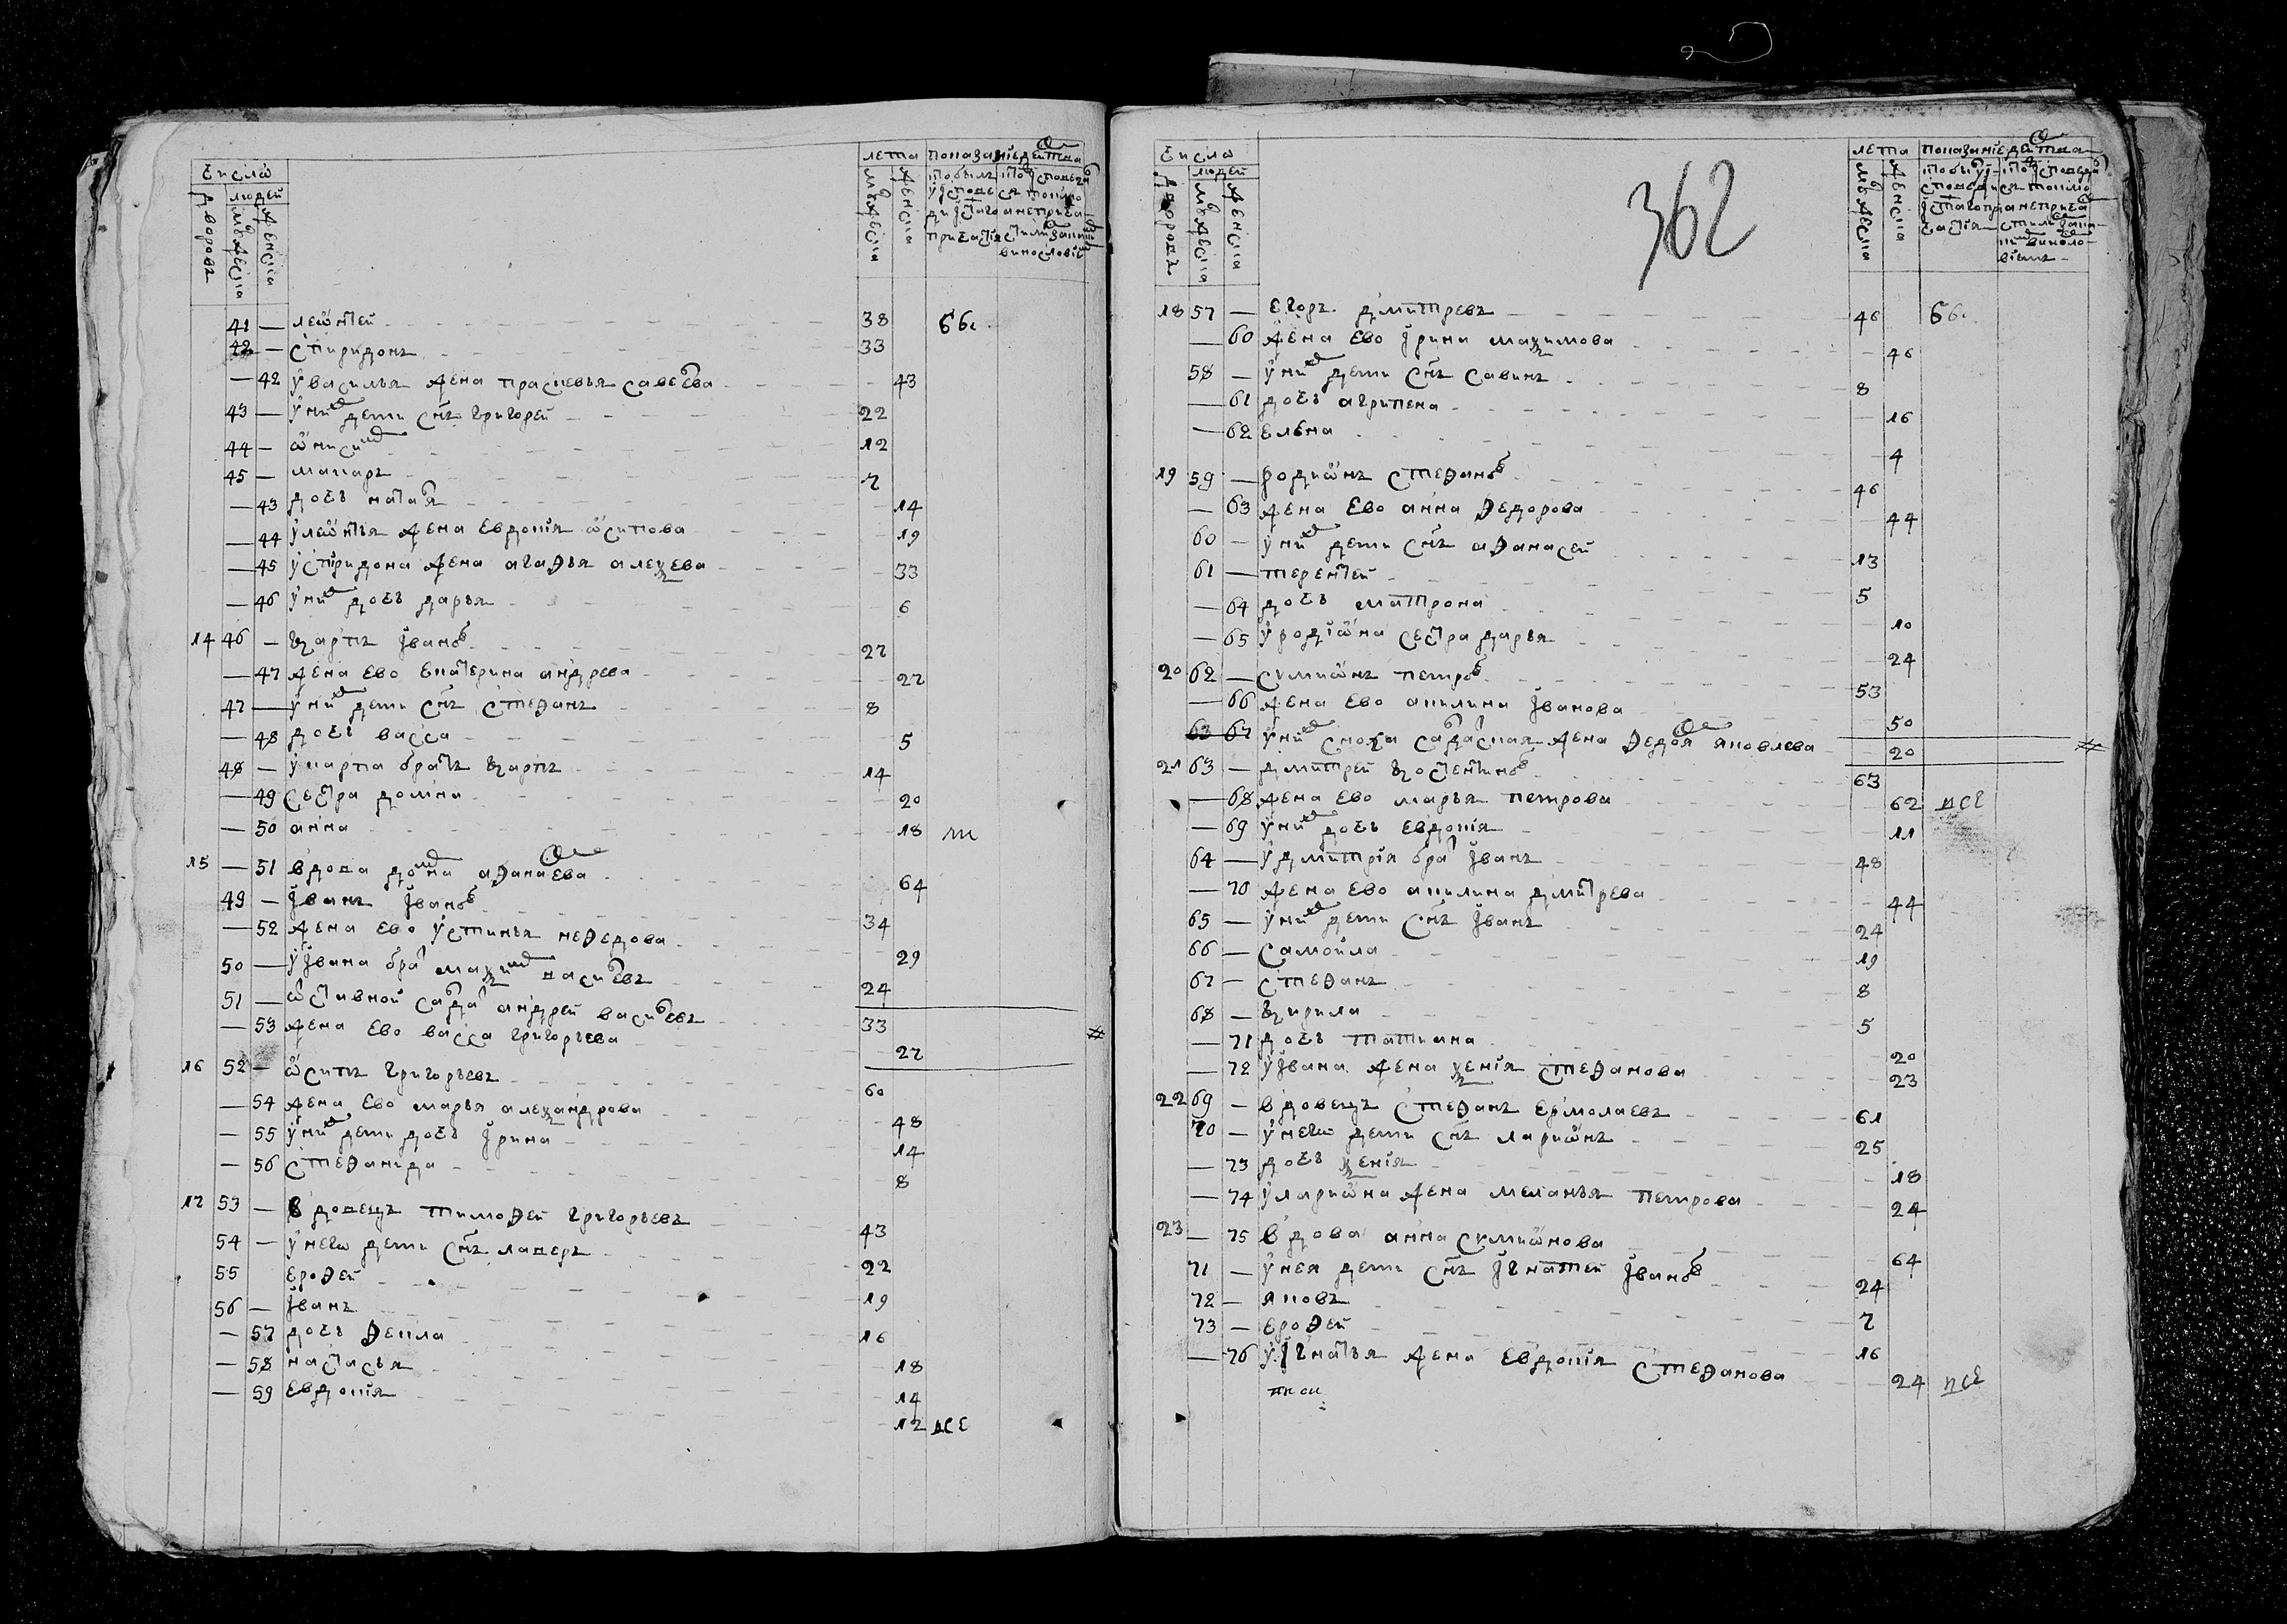 число
дворовъ
людей
мужеска
женска
лета
мужеска
женска
показание
41 — леѡнтей 38 ббс
42 — спиридонъ 33
— 42 у василья жена прасковья савеева 43
43 — у них дети снъ григорей 22
44 — ѡнисим 12
45 — макаръ 7
— 43 дочь наталя 14
— 44 у леѡнтья жена евдокїя ѡсипова 19
— 45 у спиридона жена агафья алеѯева 33
— 46 у них дочь дарья 6
14 46 — карпъ Івановъ 27
— 47 жена ево екатерина андреева 27
47 — у них дети снъ стефанъ 8
— 48 дочь васса 5
48 — у карпа братъ карпъ 14
— 49 сестра домна 20
— 50 анна 18
15 — 51 вдова домна афанасева 64
49 — Іванъ Івановъ 34
— 52 жена ево устинья нефедова 29
50 — у Івана брат маѯим васильевъ 24
51 — ѡставной салдат андрей васильевъ 33
— 53 жена ево васса григорьева 27
16 52 — ѡсипъ григорьевъ 60
— 54 жена ево марья алеѯандрова 48
— 55 у них дети дочь Ірина 14
— 56 стефанида 8
17 53 — вдовецъ тимофей григорьевъ 43
54 — у него дети снъ лаверъ 22
55 ерофей 19
56 — Іванъ 16
— 57 дочь фекла 18
— 58 настасья 14
— 59 евдокїя 12 все
362
число
дворовъ
людей
мужеска
женска
лета
мужеска
женска
показание
18 57 — егоръ дмитревъ 46 ббс
— 60 жена ево Ірина маѯимова 46
58 — у них дети снъ савинъ 8
— 61 дочь агрипена 16
— 62 елена 4
19 59 — родиѡнъ стефановъ 46
— 63 жена ево анна федорова 44
60 — у них дети снъ афанасей 13
61 — терентей 5
— 64 дочь матрона 10
— 65 у родиѡна сестра дарья 24
20 62 — сумиѡнъ петровъ 53
— 66 жена ево акилина Іванова 50
63 67 у них сноха салдатская жена федосья яковлева 20
21 63 — дмитрей костентиновъ 63
— 68 жена ево марья петрова 62 все
— 69 у них дочь евдокїя 11
64 — у дмитрїя брат Іванъ 48
— 70 жена ево акилина дмитрева 44
65 — у них дети снъ Іванъ 24
66 — самойла 19
67 — стефанъ 8
68 — кирила 5
— 71 дочь татиана 20
— 72 у Івана жена ѯенїя стефанова 23
22 69 — вдовецъ стефанъ ермолаевъ 61
70 — у него дети снъ лариѡнъ 25
— 73 дочь ѯенїя 18
— 74 у лариѡна жена меланья петрова 24
23 — 75 вдова анна сумиѡнова 64
71 — у нея дети снъ Ігнатей Івановъ 24
72 — яковъ 7
73 — ерофей 16
— 76 у Ігнатья жена евдокїя стефанова 24 все